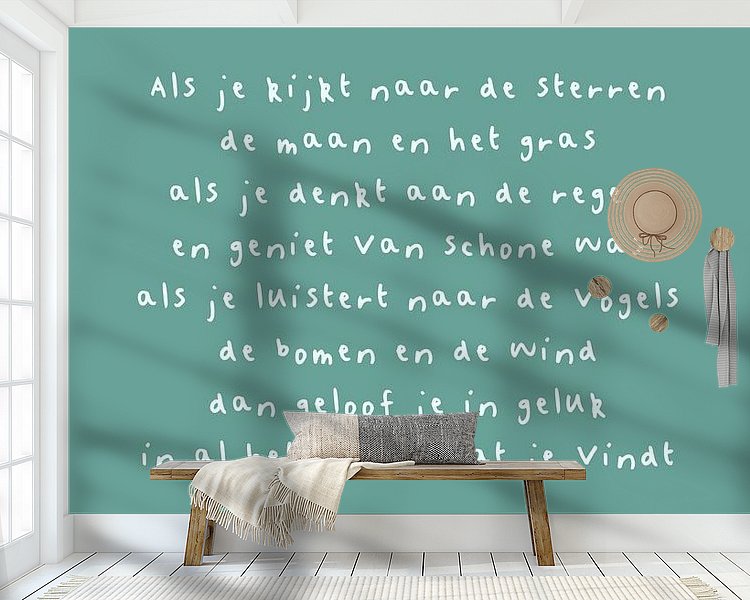 Als je kijkt naar de sterren
de maan en het gras
als je denkt aan de
en geniet van schone
als je luistert naar de vogels
de bomen en de wind
dan geloof je in geluk
in al je vindt